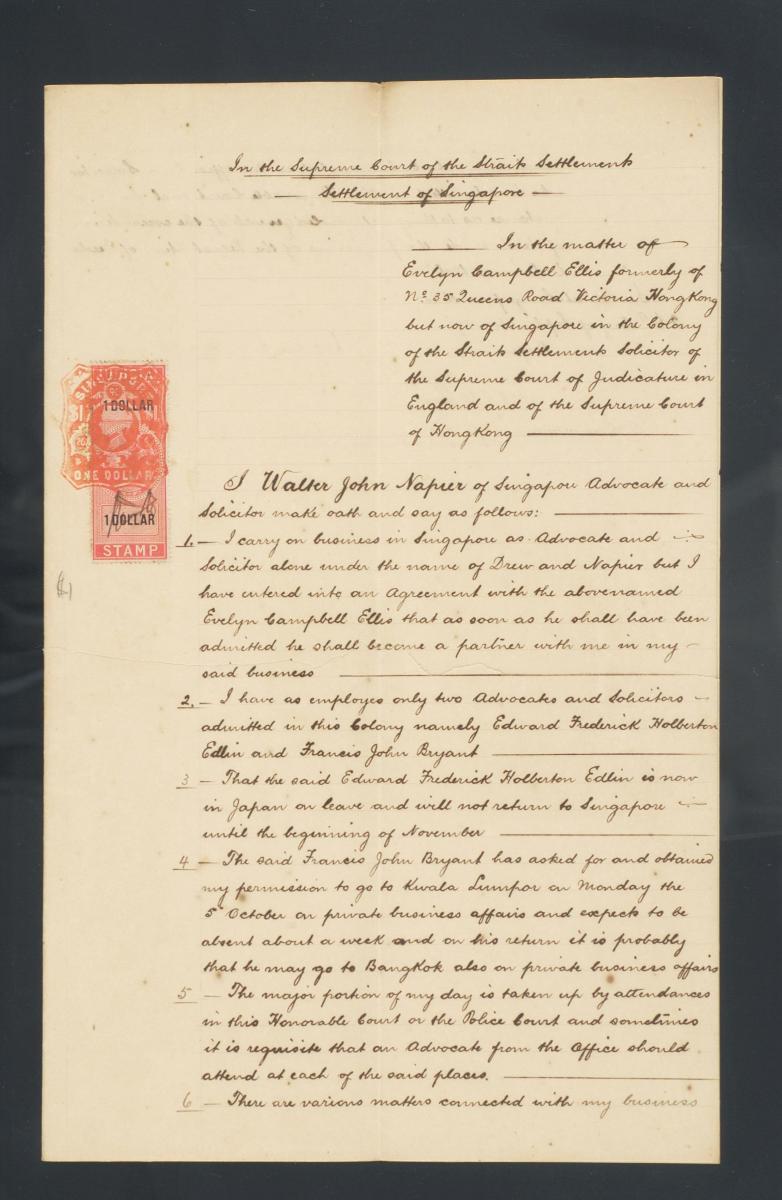 In the Supreme Court of the Straits Settlements
— Settlement of Singapore —
In the matter of
Evelyn Campbell Ellis formerly of
No. 35 Queens Road Victoria HongKong
but now of Singapore in the Colony
of the Straits Settlements Solicitor of
the Supreme Court of Judicature in
England and of the Supreme Court
of HongKong
SINGAPORE
1 DOLLAR
$1
ONE DOLLAR
1 DOLLAR
STAMP
I Walter John Napier of Singapore Advocate and
Solicitor make oath and say as follows:
1. — I carry on business in Singapore as Advocate and
Solicitor alone under the name of Drew and Napier but I
have entered into an Agreement with the abovenamed
Evelyn Campbell Ellis that as soon as he shall have been
admitted he shall become a partner with me in my
said business
2. — I have as employes only two Advocates and Solicitors
admitted in this Colony namely Edward Frederick Holberton
Edlin and Francis John Bryant
3 — That the said Edward Frederick Holberton Edlin is now
in Japan on leave and will not return to Singapore
until the beginning of November
4 — The said Francis John Bryant has asked for and obtained
my permission to go to Kwala Lumpor on Monday the
5 October on private business affairs and expects to be
absent about a week and on his return it is probably
that he may go to Bangkok also on private business affairs
5 — The major portion of my day is taken up by attendances
in this Honorable Court or the Police Court and sometimes
it is requisite that an Advocate from the Office should
attend at each of the said places.
6 — There are various matters connected with my business